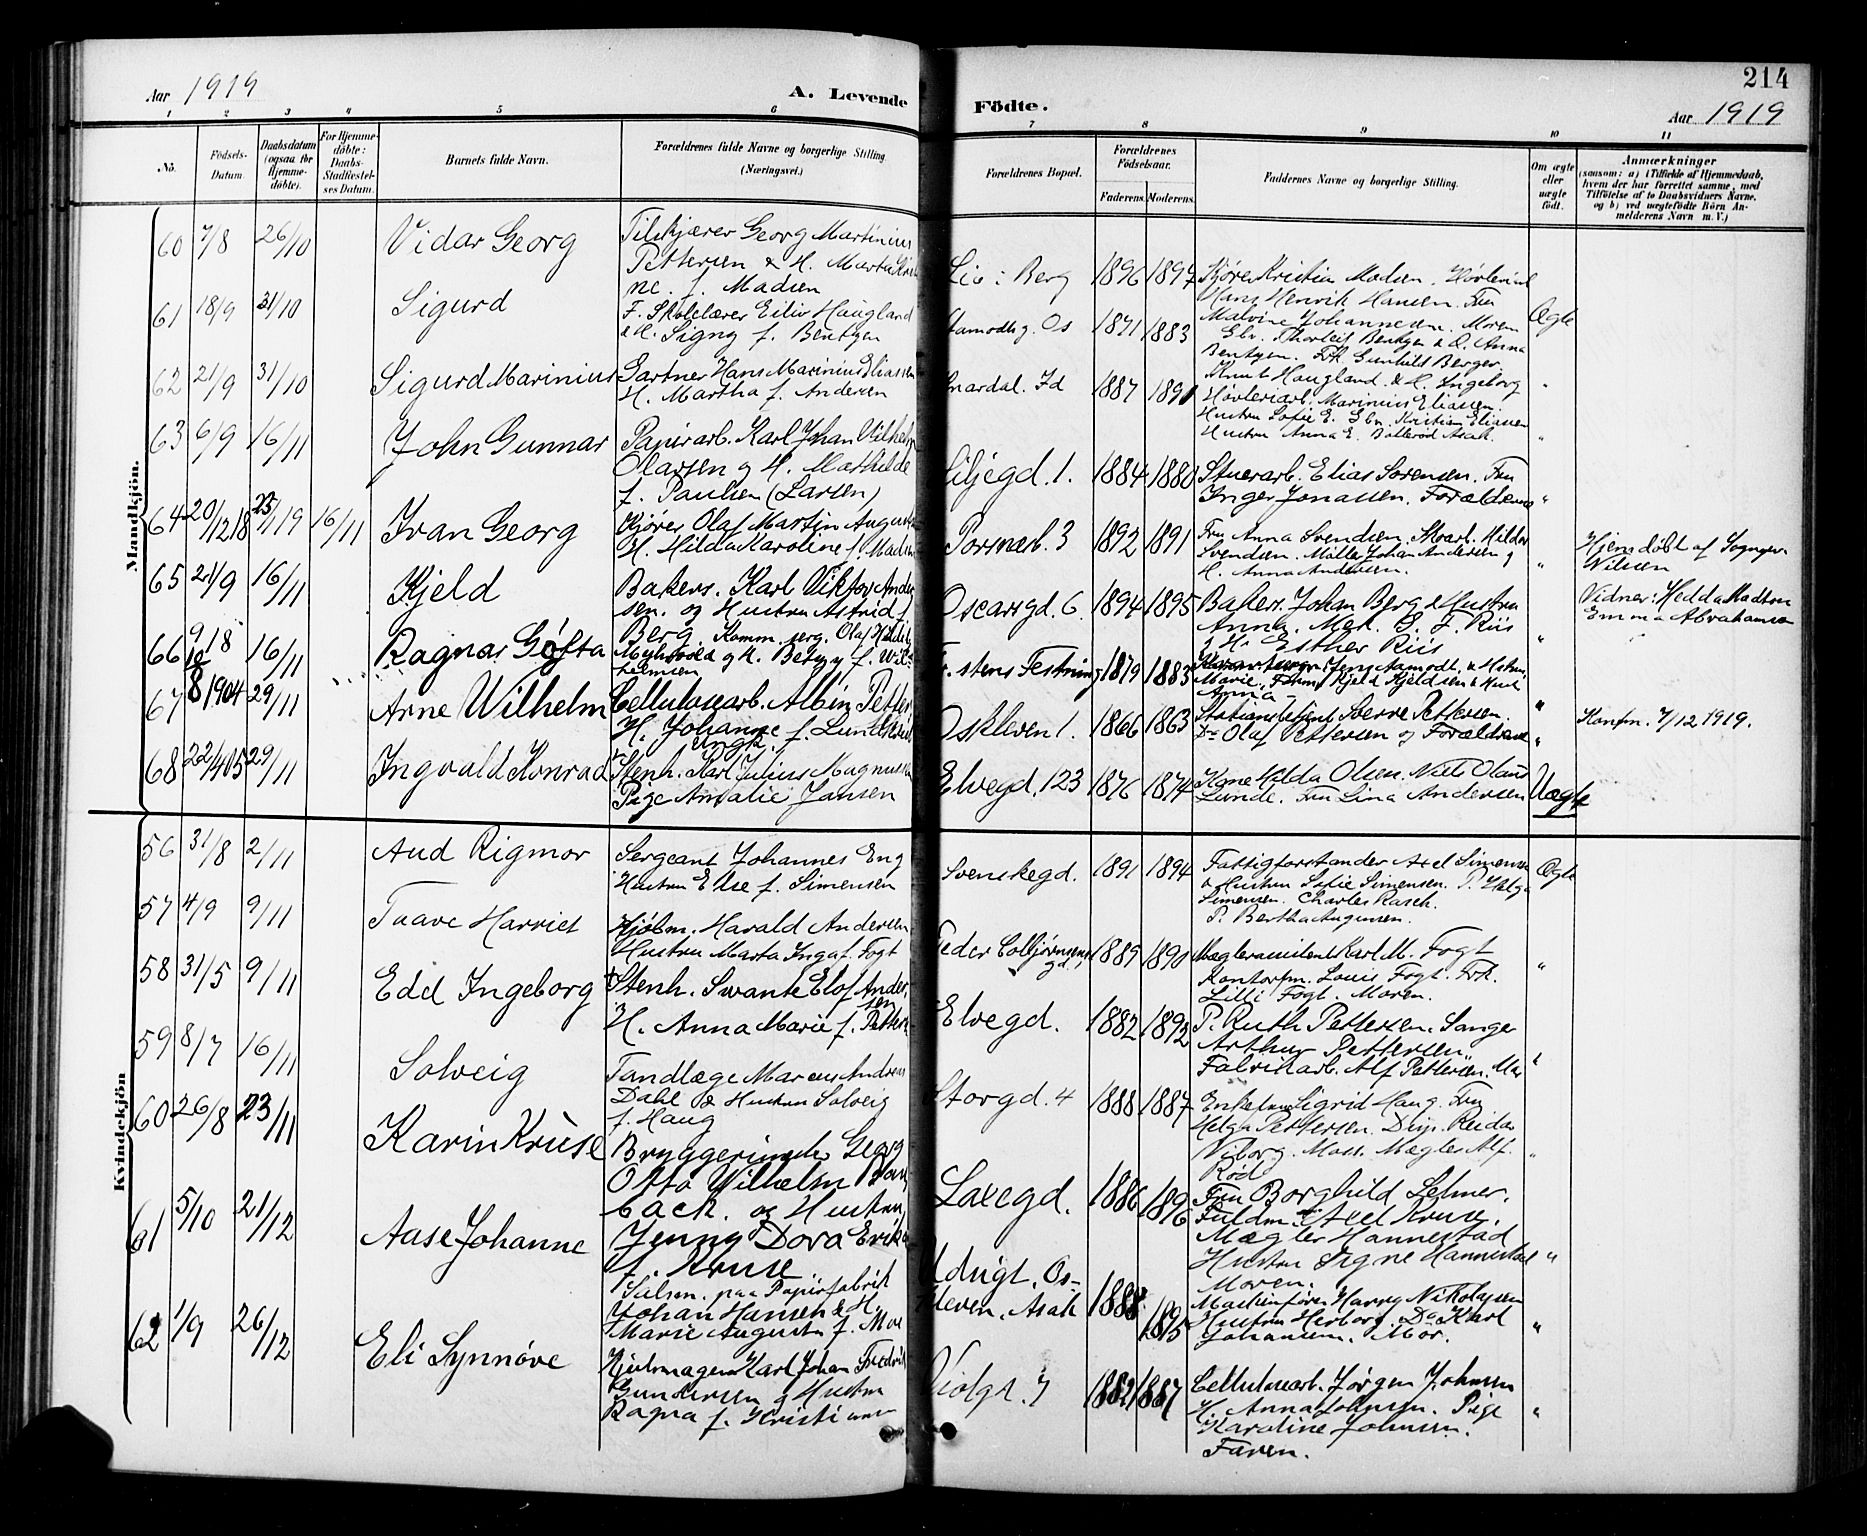 214
Aar 1919
A. Levende Födte.
Aar 1919
1 2 3 4 5 6 7 8 9 10 11
No.
Födsels-Datum.
Daabsdatum (ogsaa for Hjemmedöbte).
For Hjemmedöbte: Daabs-Stadfæstelses Datum.
Barnets fulde Navn.
Forældrenes fulde Navne og borgerlige Stilling (Næringsvei.)
Forældrenes Bopæl.
Forældrenes Födselsaar.
Faderens. Moderens.
Faddernes Navne og borgerlige Stilling.
Om ægte eller uægte født.
Anmærkninger
(saasom: a) i Tilfælde af Hjemmedaab,
hvem der har forrettet samme, med
Tilföielse af to Daabsvidners Navne,
og b) ved uægtefödte Börn An-
melderens Navn m. V.)
Mandkjön.
60 7/8 26/10 Vidar Georg
Tilskjærer Georg Martinius
Pettersen & H. Marta Kristi
ne f. Madsen
Berg 1896 1897
Kjører Kristian Madsen.
Hans Henrik Hansen. Fru
Malvine Johannesen. Moren
Ægte
61 18/9 31/10 Sigurd
F. Skolelærer Eiliv Haugland
& H. Signy f. Bentzen
Os 1871 1883
Gbr. Thorleif Bentzen & D. Anna
Bentzen. Frk. Gunhild Berger
Knut Haugland & H. Ingeborg
62 21/9 31/10 Sigurd Marinius
Gartner Hans Marinius Eliassen
H. Martha f. Andersen
Id 1887 1890
Høvleriarb. Marinius Eliassen.
Hustru Sofie E. Gbr. Kristian Eliassen
Hustru Anna E. Asak.
"
63 6/9 16/11 John Gunnar
Papirarb. Karl Johan Vilhelm
Olavsen og H. Mathilde
f. Paulsen (Larsen)
Siljegd. 1. 1884 1880
Stuerarb. Elias Sørensen. Fru
Inger Jonassen. Forældrene
"
64 20/12 18 25/1 19 16/11 Ivan Georg
Kjører Olaf Martin August
H. Hilda Karoline f. Madsen
1892 1891
Fru Anna Svendsen. Skoarb. Hilder
Svendsen. Møller Johan Andersen og
H. Anna Andersen.
"
Hjemdøbt af Sognepr.
Nilssen
Vidner: Hedda Madsen
Emma Abrahamsen
65 21/9 16/11 Kjeld
Bakers. Karl Viktor Ander
sen. og Hustru Astrid f.
Berg.
Oscarsgd. 6. 1894 1895
Bakers. Johan Berg & Hustru
Anna. Mek. S. F. Riis
& H. Esther Riis
"
66 16/11 Ragnar Gøsta
Komm. serg. Olaf
Myhrvold og H. Betzy f. Wil-
helmsen
1879 1883
Jens Aamodt. & Hustru
Marie. Kjeld Kjeldsen & Hust
Anna
"
67 1904 29/11 Arne Wilhelm
Cellulosearb. Albin Petter
H. Johanne f. Lund
Oskleven 1. 1866 1863
Stationsbetjent Sverre Pettersen.
Do Olaf Pettersen og Forældrene
"
Konfm. 7/12 1919.
68 22/4 05 29/11 Ingvald Konrad
ungk.
Stenh. Karl Julius Magnussen
Pige Amalie Jansen
Elvegd. 123 1876 1874
Kone Hilda Olsen. Niels Olaus
Lunde. Fru Lina Andersen
Uægte
Kvindekjön
56 31/8 2/11 Aud Rigmor
Sergeant Johannes Eng
Hustru Else f. Simensen
Svenskegd. 1891 1894
Fattigforstander Axel Simensen
& Hustru Sofie Simensen. P. Helga
Simensen. Charles Rasch.
P. Bertha Augensen.
Ægte
57 4/9 9/11 Tuave Harriet
Kjøbm. Harald Andersen
Hustru Marta Inga f. Fogt
Peder Colbjørnsens
gd. 1889 1890
Mæglerassistent Karl M. Fogt
Kontorfm. Louis Fogt. Frk.
Lilli Fogt. Moren.
"
58 31/5 9/11 Edel Ingeborg
Stenh. Swante Elof Ander
sen
H. Anna Marie f. Petters
Elvegd. 1882 1892
P. Ruth Pettersen. Sanger
Arthur Pettersen.
Fabrikarb. Alf Pettersen. Mor
"
59 8/7 16/11 Solveig
Tandlæge Marcus Andreas
Dahl & Hustru Solveig
f. Haug
Storgd. 4 1888 1887
Enkefru Sigrid Haug. Fru
Helga Pettersen. Disp. Reidar
Viborg. Moss. Mægler Alf.
Rød
"
60 26/8 23/11 Karin Kruse
Georg
Otto Wilhelm
back. og Hustru
Jenny Dora Erika
f. Kruse.
Laxegd. 1886 1896
Fru Borghild Lehner.
Fuldm. Axel Kruse.
Mægler Hannestad
Hustru Signe Hannestad
Moren.
"
61 5/10 21/12 Aase Johanne
paa Papirfabrik
Johan Hansen & H.
Marie Augusta f. Moe
Udsigt. Os-
kleven. Asak 1888 1895
Maskinfører Harry Nikolaysen
Hustru Herborg. Do Karl
Johansen. Mor.
"
62 1/9 26/12 Eli Synnøve
Hjulmager Karl Johan Fredrik
Gundersen og Hustru
Ragna f. Kristiansen
Violgt. 7 1882 1887
Cellulosearb. Jørgen Johnsen
H. Anna Johnsen. Pige
Karoline Johnsen.
Faren.
"